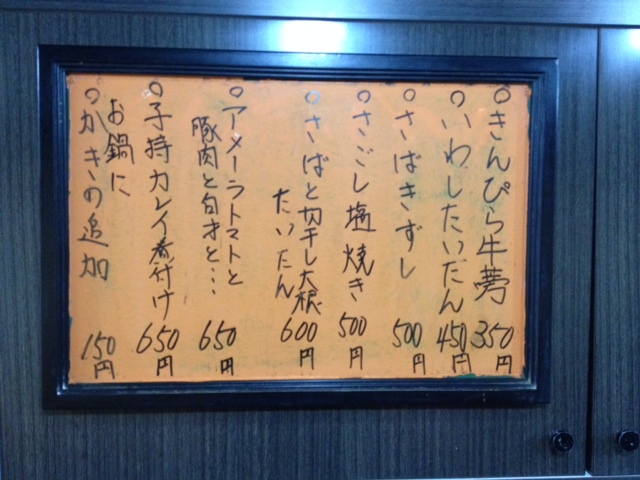 ○きんぴら牛蒡 350円
○いわしたいたん 450円
○さばきずし 500円
○さごし塩焼き 500円
○さばと切干し大根
たいたん 600円
○アメーラトマトと
豚肉と白才と… 650円
○子持カレイ煮付け 650円
お鍋に
○かきの追加 150円